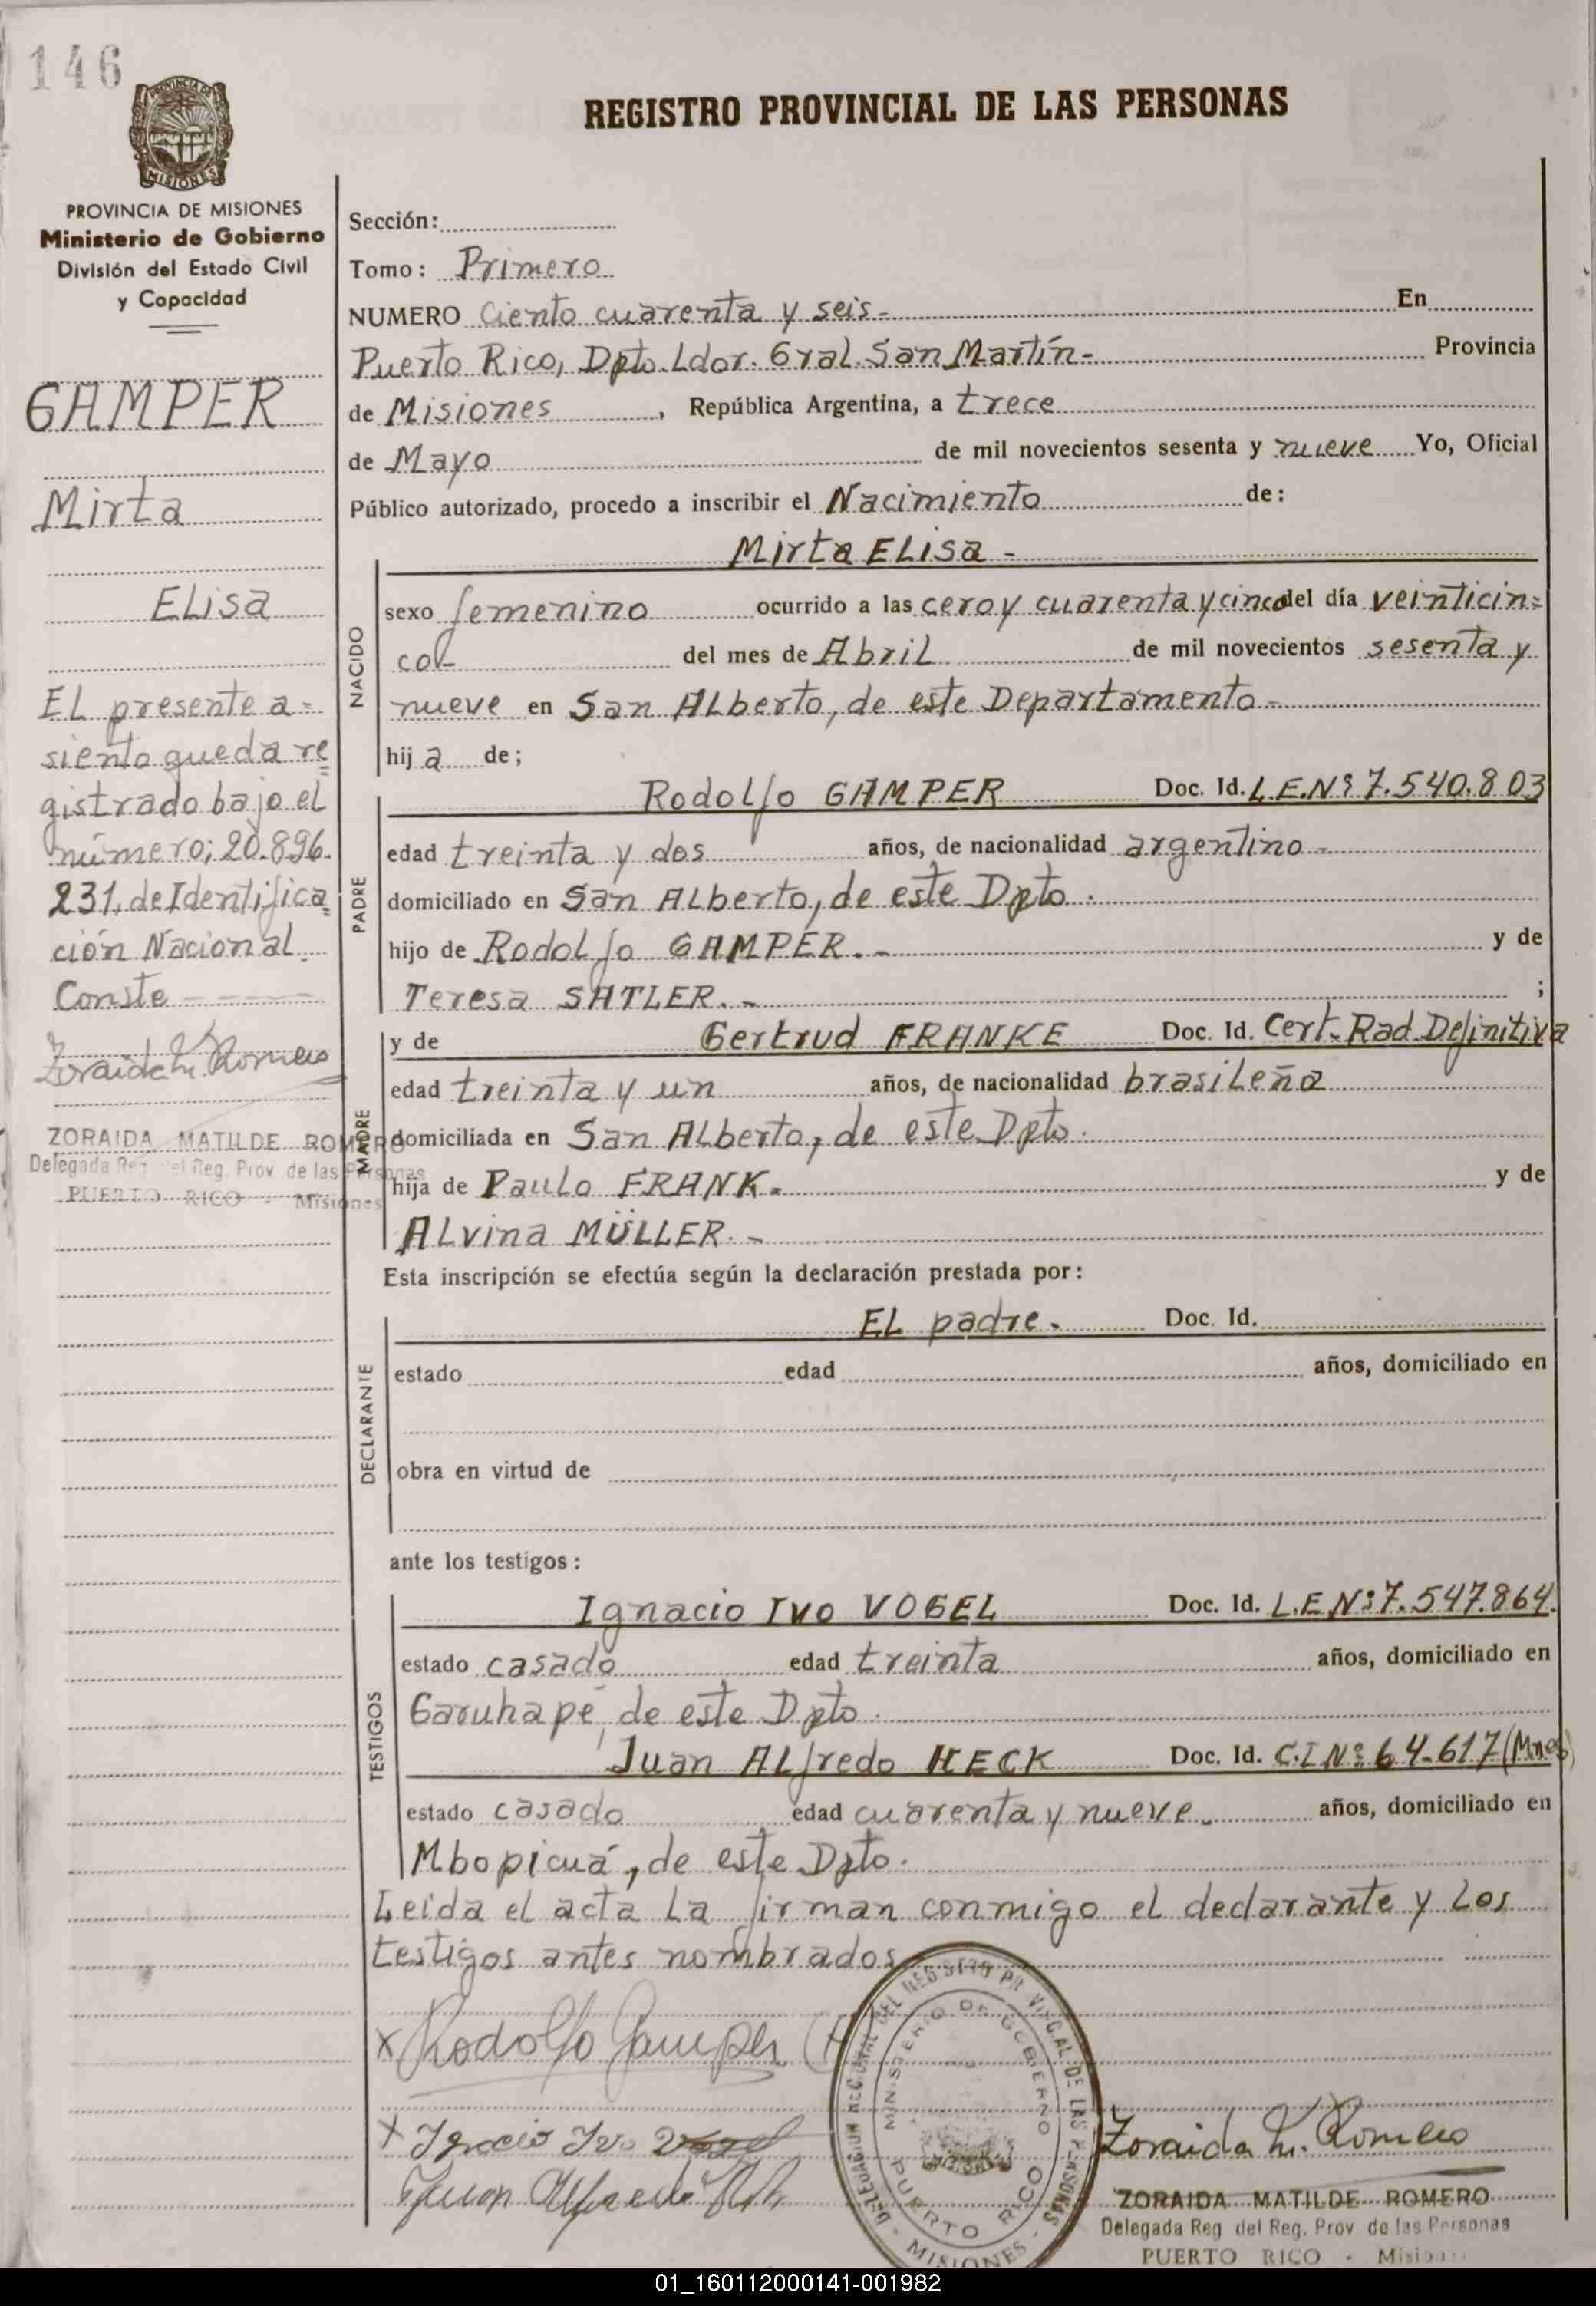 146
REGISTRO PROVINCIAL DE LAS PERSONAS
MISIONES
PROVINCIA DE MISIONES
Ministerio de Gobierno
División del Estado Civil
y Capacidad
GAMPER
Mirta
ELisa
EL presente a=
siento queda re=
gistrado bajo el
número; 20.896.
231, de Identifica=
ción Nacional.
Conste ----
Zoraida M. Romero
ZORAIDA MATILDE ROMERO
Delegada Reg. del Reg. Prov. de las Personas
PUERTO RICO - Misiones
Sección:
Tomo: Primero
NUMERO Ciento cuarenta y seis- En
Puerto Rico, Dpto. Ldor. Gral. San Martín- Provincia
de Misiones, República Argentina, a trece
de Mayo de mil novecientos sesenta y nueve Yo, Oficial
Público autorizado, procedo a inscribir el Nacimiento de:
Mirta ELisa -
NACIDO
sexo femenino ocurrido a las cero y cuarenta y cinco del día veinticin=
co- del mes de Abril de mil novecientos sesenta y
nueve en San ALberto, de este Departamento-
hija de;
PADRE
Rodolfo GAMPER Doc. Id. L.E.Nº 7.540.803
edad treinta y dos años, de nacionalidad argentino-
domiciliado en San ALberto, de este Dpto.
hijo de Rodolfo GAMPER.- y de
Teresa SATLER.- ;
MADRE
y de Gertrud FRANKE Doc. Id. Cert. Rad. Definitiva
edad treinta y un años, de nacionalidad brasileña
domiciliada en San ALberto, de este Dpto.
hija de Paulo FRANK.- y de
ALvina MÜLLER.-
Esta inscripción se efectúa según la declaración prestada por:
DECLARANTE
EL padre. Doc. Id.
estado edad años, domiciliado en
obra en virtud de
ante los testigos:
TESTIGOS
Ignacio Ivo VOGEL Doc. Id. L.E Nº 7.547.864.
estado casado edad treinta años, domiciliado en
Garuhapé, de este Dpto.
Juan ALfredo HECK Doc. Id. C.I Nº 64.617 (Mnes)
estado casado edad cuarenta y nueve. años, domiciliado en
Mbopicuá, de este Dpto.
Leida el acta La firman conmigo el declarante y Los
testigos antes nombrados
x Rodolfo Gamper (H)
x Ignacio Ivo Vogel
Juan Alfredo Heck
DELEGACION REGIONAL DEL REGISTRO PROVINCIAL DE LAS PERSONAS
MINISTERIO DE GOBIERNO
PUERTO RICO
- MISIONES -
Zoraida M. Romero
ZORAIDA MATILDE ROMERO
Delegada Reg del Reg. Prov de las Personas
PUERTO RICO - Misiones
01_160112000141-001982